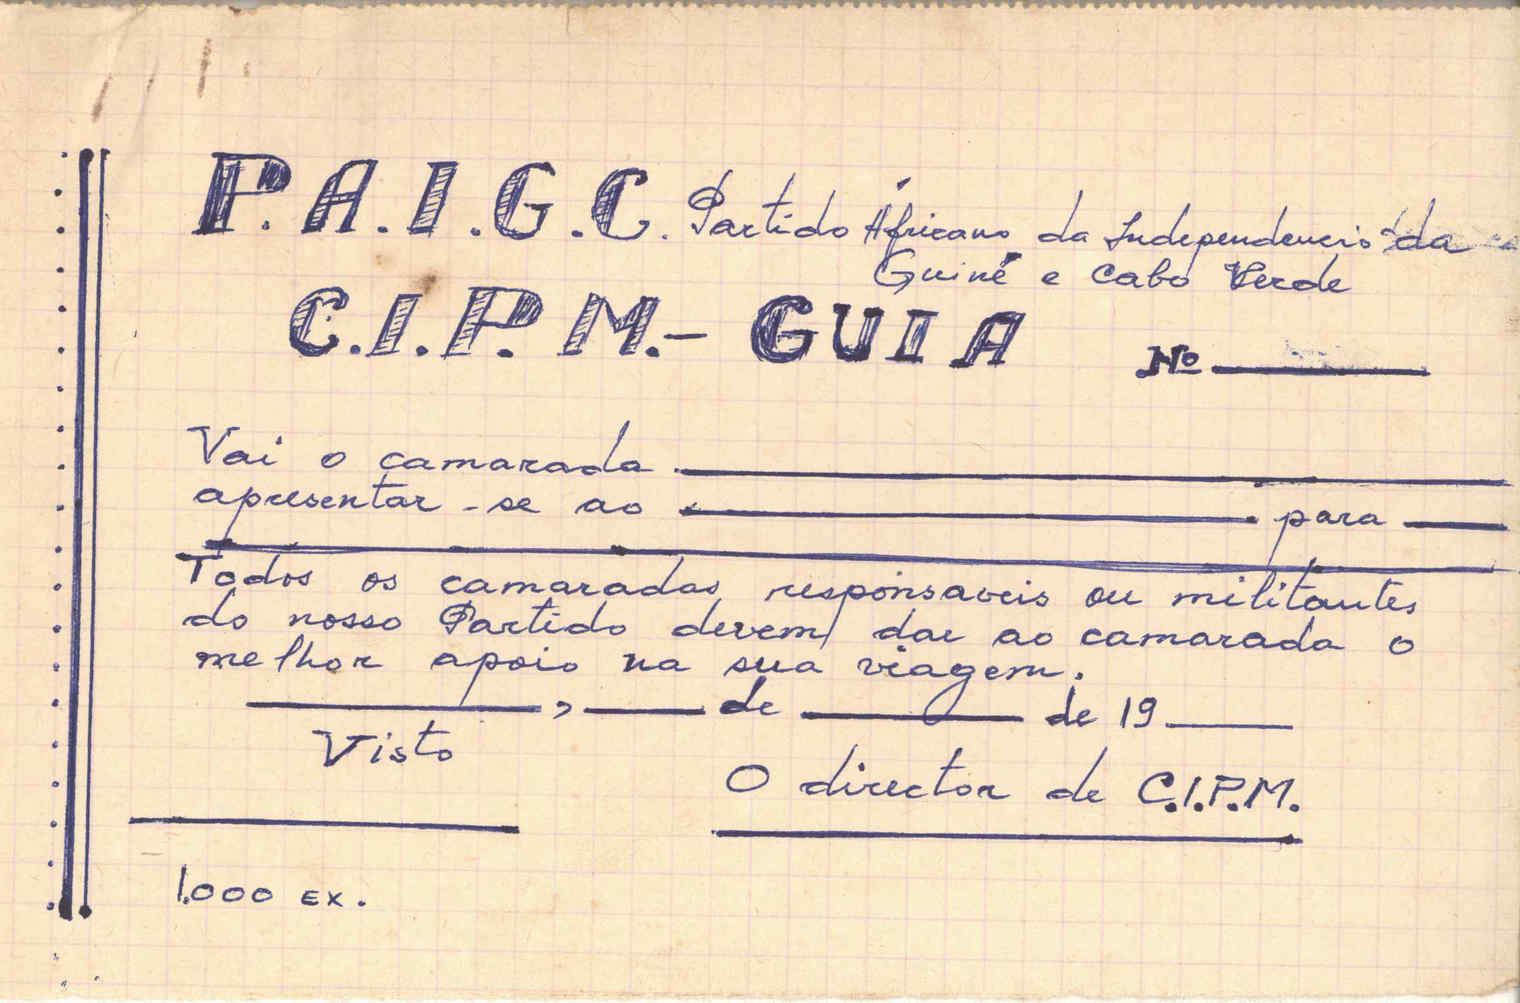 P.A.I.G.C. Partido Africano da Independencia da
Guiné e Cabo Verde
C.I.P.M. - GUIA Nº
Vai o camarada
apresentar-se ao para
Todos os camaradas, responsaveis ou militantes
do nosso Partido devem dar ao camarada o
melhor apoio na sua viagem.
, de de 19
Visto
O director de C.I.P.M.
1.000 EX.